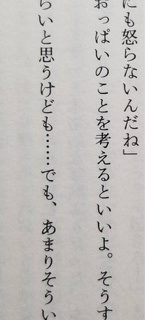 にも怒らないんだね」
おっぱいのことを考えるといいよ。そうす
らいと思うけども……でも、あまりそうい